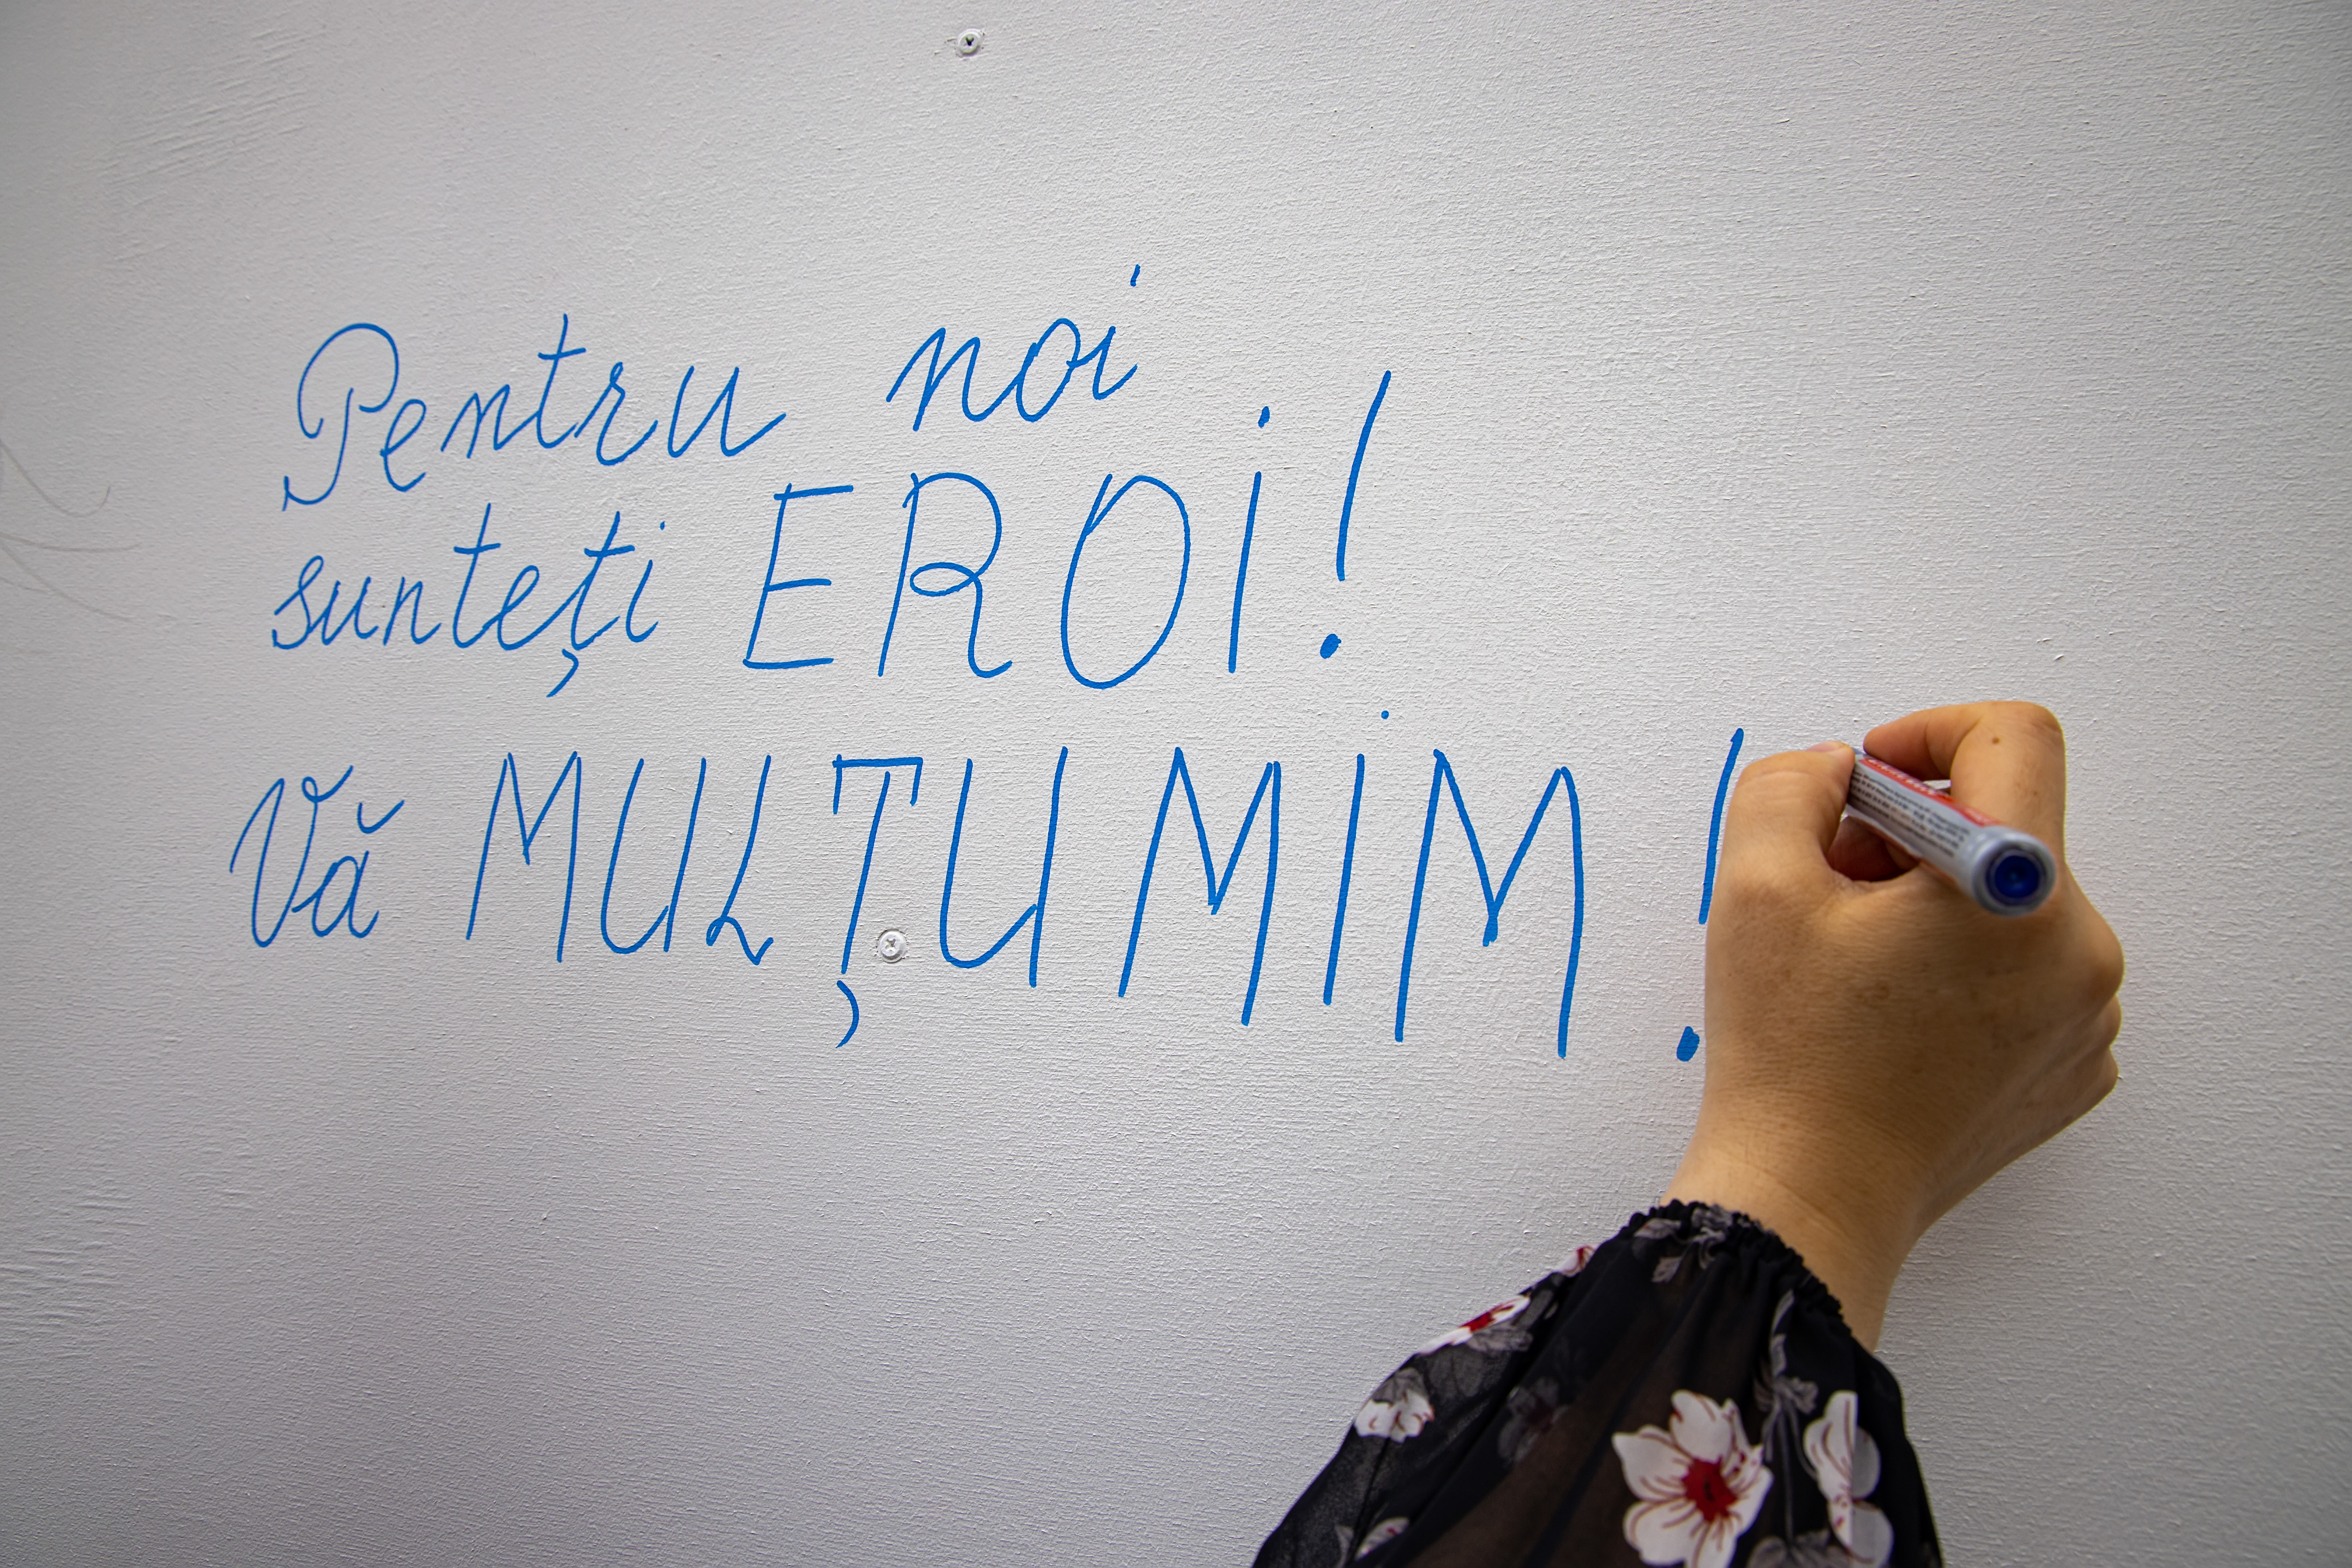 Pentru noi
sunteți EROI!
Vă MULȚUMIM!